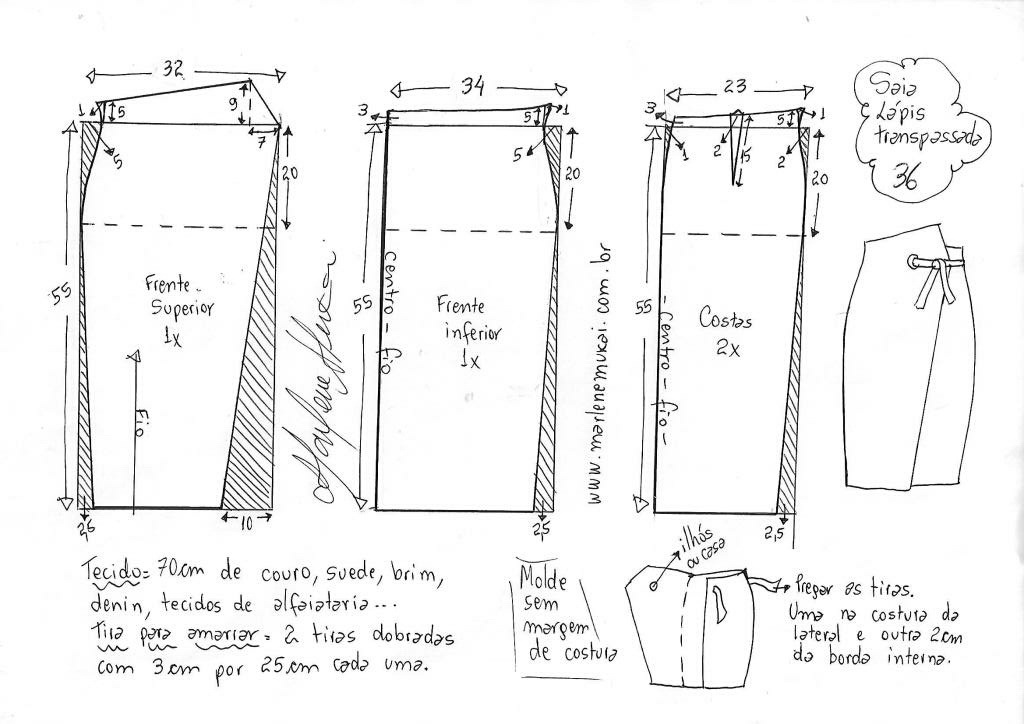 32
1
5
9
7
5
20
55
Frente
Superior
1x
Fio
2,5
10
34
3
5
1
5
20
55
centro - fio
Frente
inferior
1x
2,5
23
3
5
1
1
2
15
2
20
55
- Centro - fio -
Costas
2x
2,5
Saia
Lápis
transpassada
36
www.marlenemukai.com.br
Tecido= 70cm de couro, suede, brim,
denin, tecidos de alfaiataria...
Tira para amarrar = 2 tiras dobradas
com 3cm por 25cm cada uma.
Molde
sem
margem
de costura
ilhós
ou casa
Pregar as tiras.
Uma na costura da
lateral e outra 2cm
da borda interna.